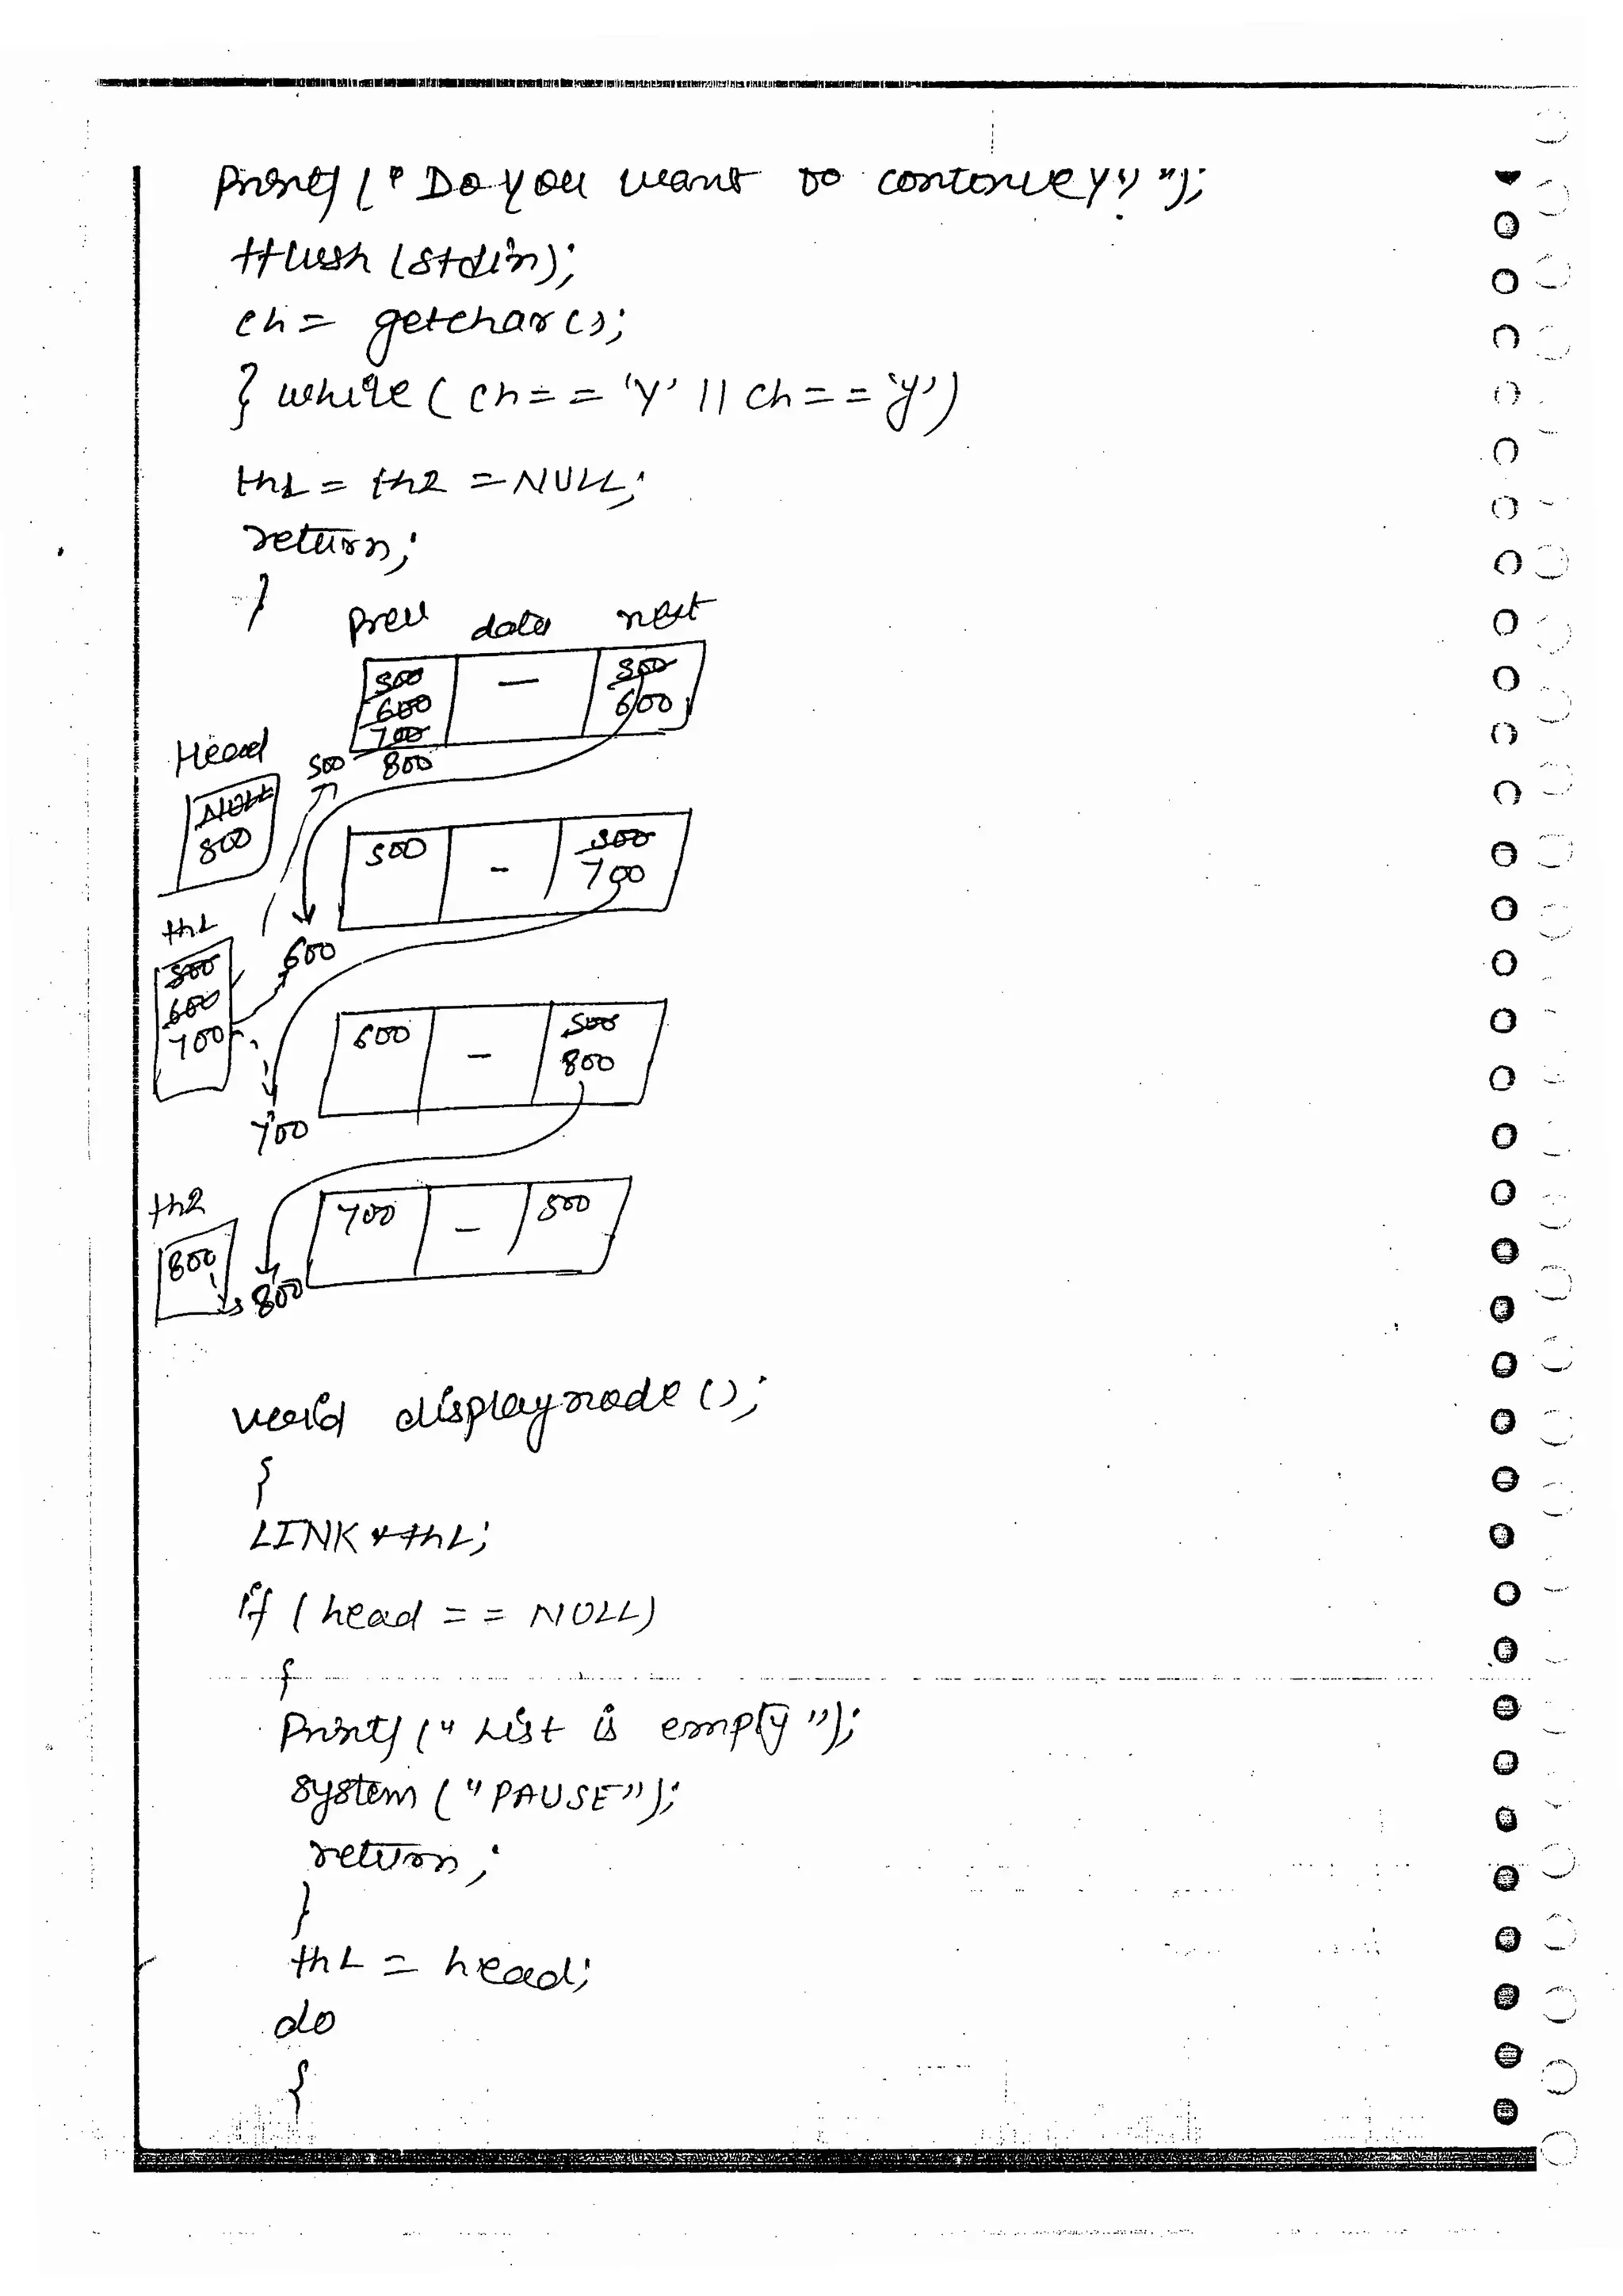 printf ("Do you want to continue y?");
fflush (stdin);
ch = getchar();
} while ( ch = = 'Y' || ch = = 'y')
th1 = th2 = NULL;
return;
}
prev data next
500 — 500
600 600
700
Head 500 800
NULL
800
500 - 500
700
th1
500 600
600
700
600 - 500
800
700
th2
800
700 - 500
800
void displaynode ();
{
LINK *th1;
if ( head = = NULL)
{
Printf (" List is empty ");
system ( "PAUSE");
return ;
}
th1 = head;
do
{